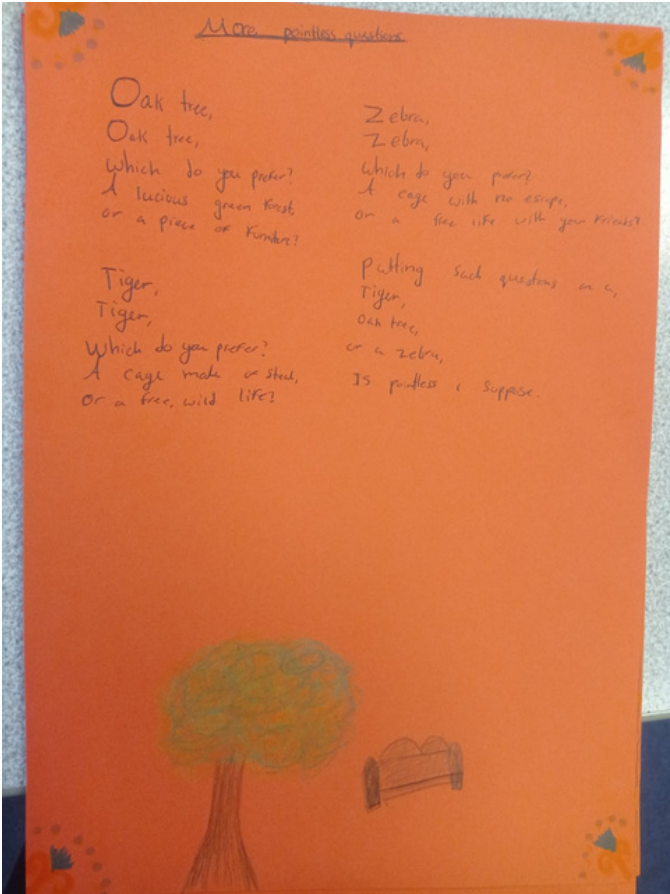 More pointless questions
Oak tree,
Oak tree,
Which do you prefer?
A lucious green forest,
or a piece of furniture?
Tiger,
Tiger,
Which do you prefer?
A cage made of steel,
Or a free, wild life?
Zebra,
Zebra,
Which do you prefer?
A cage with no escape,
or a free life with your friends?
Putting such questions on a,
Tiger,
Oak tree,
or a zebra,
Is pointless i suppose.